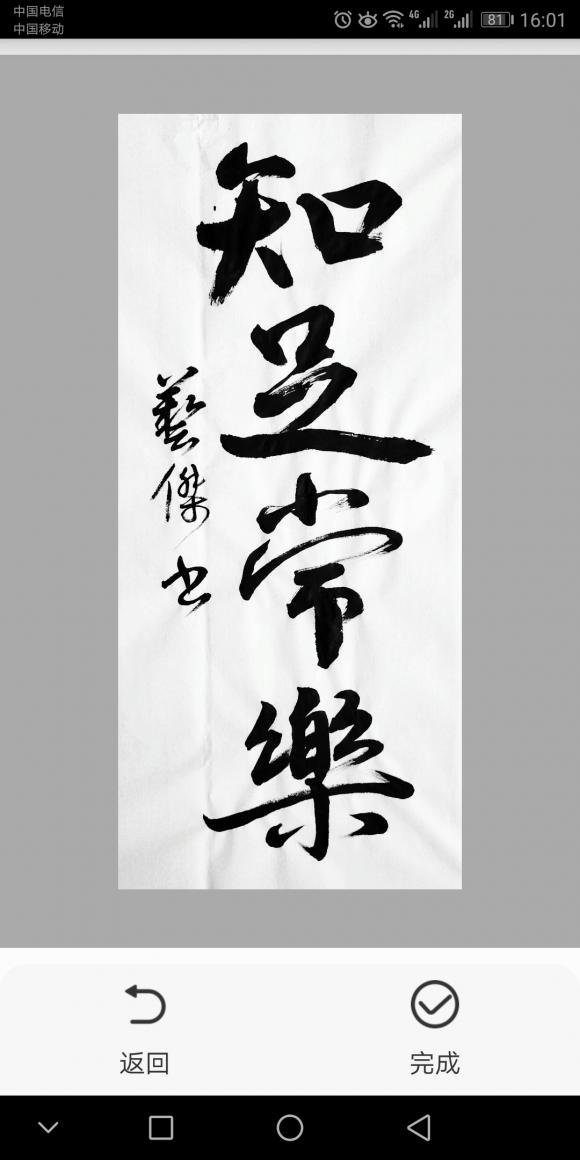 中国电信
中国移动
4G
2G
81
16:01
知足常樂
藝傑书
返回
完成